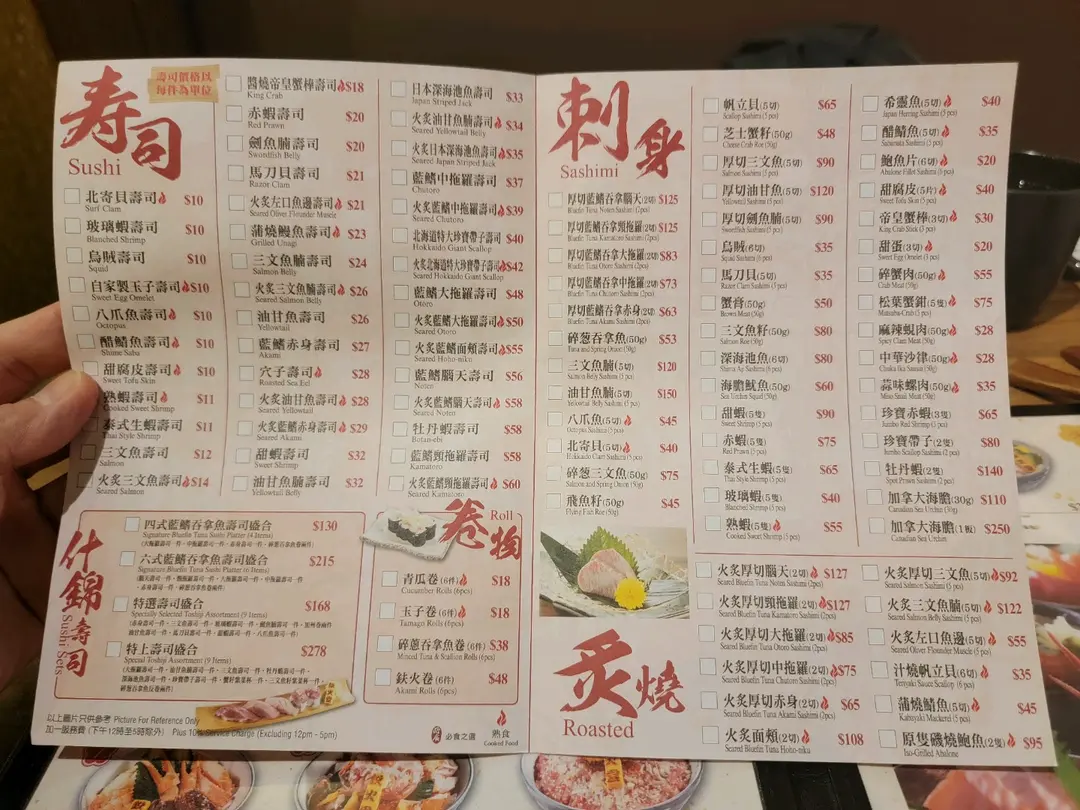 寿司
Sushi
壽司價格以
每件為單位
北寄貝壽司 $10
Surf Clam
玻璃蝦壽司 $10
Blanched Shrimp
烏賊壽司 $10
Squid
自家製玉子壽司 $10
Sweet Egg Omelet
八爪魚壽司 $10
Octopus
醋鯖魚壽司 $10
Shime Saba
甜腐皮壽司 $10
Sweet Tofu Skin
熟蝦壽司 $11
Cooked Sweet Shrimp
泰式生蝦壽司 $11
Thai Style Shrimp
三文魚壽司 $12
Salmon
火炙三文魚壽司 $14
Seared Salmon
醬燒帝皇蟹棒壽司 $18
King Crab
赤蝦壽司 $20
Red Prawn
劍魚腩壽司 $20
Swordfish Belly
馬刀貝壽司 $21
Razor Clam
火炙左口魚邊壽司 $21
Seared Oliver Flounder Muscle
蒲燒鰻魚壽司 $23
Grilled Unagi
三文魚腩壽司 $24
Salmon Belly
火炙三文魚腩壽司 $26
Seared Salmon Belly
油甘魚壽司 $26
Yellowtail
藍鰭赤身壽司 $27
Akami
穴子壽司 $28
Roasted Sea Eel
火炙油甘魚壽司 $28
Seared Yellowtail
火炙藍鰭赤身壽司 $29
Seared Akami
甜蝦壽司 $32
Sweet Shrimp
油甘魚腩壽司 $32
Yellowtail Belly
日本深海池魚壽司 $33
Japan Striped Jack
火炙油甘魚腩壽司 $34
Seared Yellowtail Belly
火炙日本深海池魚壽司 $35
Seared Japan Striped Jack
藍鰭中拖羅壽司 $37
Chutoro
火炙藍鰭中拖羅壽司 $39
Seared Chutoro
北海道特大珍寶帶子壽司 $40
Hokkaido Giant Scallop
火炙北海道特大珍寶帶子壽司 $42
Seared Hokkaido Giant Scallop
藍鰭大拖羅壽司 $48
Otoro
火炙藍鰭大拖羅壽司 $50
Seared Otoro
火炙藍鰭面頰壽司 $55
Seared Hoho-niku
藍鰭腦天壽司 $56
Noten
火炙藍鰭腦天壽司 $58
Seared Noten
牡丹蝦壽司 $58
Botan-ebi
藍鰭頸拖羅壽司 $58
Kamatoro
火炙藍鰭頸拖羅壽司 $60
Seared Kamatoro
什錦壽司
Sushi Sets
四式藍鰭吞拿魚壽司盛合 $130
Signature Bluefin Tuna Sushi Platter (4 Items)
六式藍鰭吞拿魚壽司盛合 $215
Signature Bluefin Tuna Sushi Platter (6 Items)
特選壽司盛合 $168
Specially Selected Toshiji Assortment (9 Items)
特上壽司盛合 $278
Special Toshiji Assortment (9 Items)
卷物
Roll
青瓜卷 (6件) $18
Cucumber Rolls (6pcs)
玉子卷 (6件) $18
Tamago Rolls (6pcs)
碎蔥吞拿魚卷 (6件) $38
Minced Tuna & Scallion Rolls (6pcs)
鉄火卷 (6件) $48
Akami Rolls (6pcs)
以上圖片只供參考 Picture For Reference Only
加一服務費 (下午12時至5時除外) Plus 10% Service Charge (Excluding 12pm - 5pm)
必食之選
熟食
Cooked Food
刺身
Sashimi
厚切藍鰭吞拿腦天(2切) $125
Bluefin Tuna Noten Sashimi (2pcs)
厚切藍鰭吞拿頸拖羅(2切) $125
Bluefin Tuna Kamatoro Sashimi (2pcs)
厚切藍鰭吞拿大拖羅(2切) $83
Bluefin Tuna Otoro Sashimi (2pcs)
厚切藍鰭吞拿中拖羅(2切) $73
Bluefin Tuna Chutoro Sashimi (2pcs)
厚切藍鰭吞拿赤身(2切) $63
Bluefin Tuna Akami Sashimi (2pcs)
碎葱吞拿魚(50g) $53
Tuna and Spring Onion (50g)
三文魚腩(5切) $120
Salmon Belly Sashimi (5 pcs)
油甘魚腩(5切) $150
Yellowtail Belly Sashimi (5 pcs)
八爪魚(5切) $45
Octopus Sashimi (5 pcs)
北寄貝(5切) $40
Hokkaido Clam Sashimi (5 pcs)
碎葱三文魚(50g) $75
Salmon and Spring Onion (50g)
飛魚籽(50g) $45
Flying Fish Roe (50g)
帆立貝(5切) $65
Scallop Sashimi (5 pcs)
芝士蟹籽(50g) $48
Cheese Crab Roe (50g)
厚切三文魚(5切) $90
Salmon Sashimi (5 pcs)
厚切油甘魚(5切) $120
Yellowtail Sashimi (5 pcs)
厚切劍魚腩(5切) $90
Swordfish Sashimi (5 pcs)
烏賊(6切) $35
Squid Sashimi (6 pcs)
馬刀貝(5切) $35
Razor Clam Sashimi (5 pcs)
蟹膏(50g) $50
Brown Meat (50g)
三文魚籽(50g) $80
Salmon Roe (50g)
深海池魚(6切) $80
Shima Aji Sashimi (6 pcs)
海膽魷魚(50g) $60
Sea Urchin Squid (50g)
甜蝦(5隻) $90
Sweet Shrimp (5 pcs)
赤蝦(5隻) $75
Red Prawn (5 pcs)
泰式生蝦(5隻) $65
Thai Style Shrimp (5 pcs)
玻璃蝦(5隻) $40
Blanched Shrimp (5 pcs)
熟蝦(5隻) $55
Cooked Sweet Shrimp (5 pcs)
希靈魚(5切) $40
Japan Herring Sashimi (5 pcs)
醋鯖魚(5切) $35
Sabazusta Sashimi (5 pcs)
鮑魚片(6切) $20
Abalone Fillet Sashimi (6 pcs)
甜腐皮(5片) $40
Sweet Tofu Skin (5 pcs)
帝皇蟹棒(3切) $30
King Crab Stick (3 pcs)
甜蛋(3切) $20
Sweet Egg Omelet (3 pcs)
碎蟹肉(50g) $55
Crab Meat (50g)
松葉蟹鉗(5隻) $75
Matsuba-Crab (5 pcs)
麻辣蜆肉(50g) $28
Spicy Clam Meat (50g)
中華沙律(50g) $28
Chuka Ika Sansai (50g)
蒜味螺肉(50g) $35
Miso Snail Meat (50g)
珍寶赤蝦(3隻) $65
Jumbo Red Shrimp (3 pcs)
珍寶帶子(2隻) $80
Jumbo Scallop Sashimi (2 pcs)
牡丹蝦(2隻) $140
Spot Prawn Sashimi (2 pcs)
加拿大海膽(30g) $110
Canadian Sea Urchin (30g)
加拿大海膽(1板) $250
Canadian Sea Urchin
炙燒
Roasted
火炙厚切腦天(2切) $127
Seared Bluefin Tuna Noten Sashimi (2 pcs)
火炙厚切頸拖羅(2切) $127
Seared Bluefin Tuna Kamatoro Sashimi (2 pcs)
火炙厚切大拖羅(2切) $85
Seared Bluefin Tuna Otoro Sashimi (2 pcs)
火炙厚切中拖羅(2切) $75
Seared Bluefin Tuna Chutoro Sashimi (2 pcs)
火炙厚切赤身(2切) $65
Seared Bluefin Tuna Akami Sashimi (2 pcs)
火炙面頰(2切) $108
Seared Bluefin Tuna Hoho-niku
火炙厚切三文魚(5切) $92
Seared Salmon Sashimi (5 pcs)
火炙三文魚腩(5切) $122
Seared Salmon Belly Sashimi (5 pcs)
火炙左口魚邊(5切) $55
Seared Oliver Flounder Muscle (5 pcs)
汁燒帆立貝(6切) $35
Teriyaki Sauce Scallop (6 pcs)
蒲燒鯖魚(5切) $45
Kabayaki Mackerel (5 pcs)
原隻磯燒鮑魚(2隻) $95
Iso-Grilled Abalone